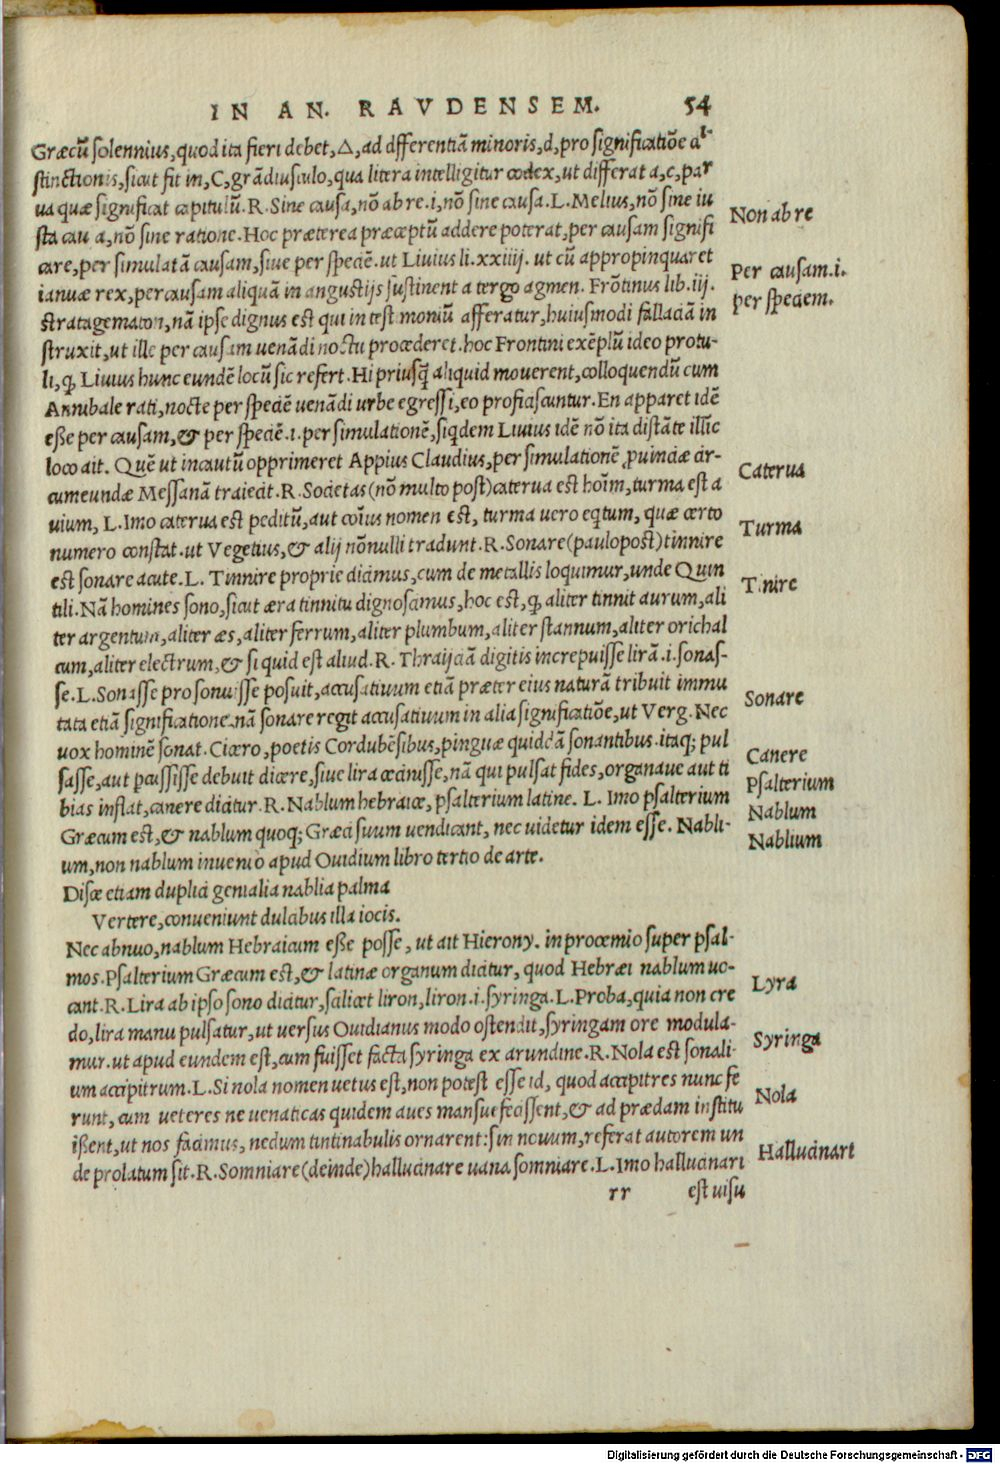 IN AN. RAVDENSEM. 54
Græcũ solennius, quod ita fieri debet, △, ad dfferentiã minoris, d, pro significatiõe al-
stinctionis, sicut fit in, C, grãdiusculo, qua litera intelligitur codex, ut differat a, c, par
ua quæ significat capitulũ. R. Sine causa, nõ ab re. i, nõ sine causa. L. Melius, nõ sine iu
sta cau a, nõ sine ratione. Hoc præterea præceptũ addere poterat, per causam signifi
care, per simulatã causam, siue per speciẽ. ut Liuius li. xxiiij. ut cũ appropinquaret
ianuæ rex, per causam aliquã in angustijs sustinent a tergo agmen. Frõtinus lib. iij.
stratagematon, nã ipse dignus est qui in testimoniũ afferatur, huiusmodi fallaciã in
struxit, ut ille per causam uenãdi noctu procederet. hoc Frontini exẽplũ ideo protu-
li, q, Liuius hunc eundẽ locũ sic refert. Hi priusq̃ aliquid mouerent, colloquendũ cum
Annibale rati, nocte per speciẽ uenãdi urbe egressi, eo proficiscuntur. En apparet idẽ
eße per causam, & per speciẽ. i. per simulationẽ, siqdem Liuius idẽ nõ ita distãte illic
loco ait. Quẽ ut incautũ opprimeret Appius Claudius, per simulationẽ ꝓuinciæ cir-
cumeundæ Messanã traiecit. R. Societas (nõ multo post) caterua est hoĩm, turma est a
uium, L. Imo caterua est peditũ, aut cõius nomen est, turma uero eqtum, quæ certo
numero constat. ut Vegetius, & alij nõnulli tradunt. R. Sonare (paulopost) tinnire
est sonare acute. L. Tinnire proprie dicimus, cum de metallis loquimur, unde Quin
tili. Nã homines sono, sicut æra tinnitu dignoscimus, hoc est, q, aliter tinnit aurum, ali
ter argentum, aliter æs, aliter ferrum, aliter plumbum, aliter stannum, aliter orichal
cum, aliter electrum, & si quid est aliud. R. Thraijciã digitis increpuisse lirã. i. sonas-
se. L. Sonasse pro sonuisse posuit, accusatiuum etiã præter eius naturã tribuit immu
tata etiã significatione. nã sonare regit accusatiuum in alia significatiõe, ut Verg. Nec
uox hominẽ sonat. Cicero, poetis Cordubẽsibus, pingue quiddã sonantibus. itaq; pul
sasse, aut pcussisse debuit dicere, siue lira cecinisse, nã qui pulsat fides, organaue aut ti
bias inflat, canere dicitur. R. Nablum hebraice, psalterium latine. L. Imo psalterium
Græcum est, & nablum quoq; Græci suum uendicant, nec uidetur idem esse. Nabli-
um, non nablum inuenio apud Ouidium libro tertio de arte.
Disce etiam duplici genialia nablia palma
Vertere, conueniunt dulcibus illa iocis.
Nec abnuo, nablum Hebraicum eße posse, ut ait Hierony. in procemio super psal-
mos. Psalterium Græcum est, & latinæ organum dicitur, quod Hebræi nablum uo-
cant. R. Lira ab ipso sono dicitur, scilicet liron, liron. i. syringa. L. Proba, quia non cre
do, lira manu pulsatur, ut uersus Ouidianus modo ostendit, syringam ore modula-
mur. ut apud eundem est, cum fuisset facta syringa ex arundine. R. Nola est sonali-
um accipitrum. L. Si nola nomen uetus est, non potest esse id, quod accipitres nunc fe
runt, cum ueteres ne uenaticas quidem aues mansuefecissent, & ad prædam institu
ißent, ut nos facimus, nedum tintinabulis ornarent: sin nouum, referat autorem un
de prolatum sit. R. Somniare (deinde) hallucinare uana somniare. L. Imo hallucinari
rr est uisu
Non ab re
Per causam. i.
per speciem.
Caterua
Turma
Tinire
Sonare
Canere
Psalterium
Nablum
Nablium
Lyra
Syringa
Nola
Hallucinari
Digitalisierung gefördert durch die Deutsche Forschungsgemeinschaft - DFG